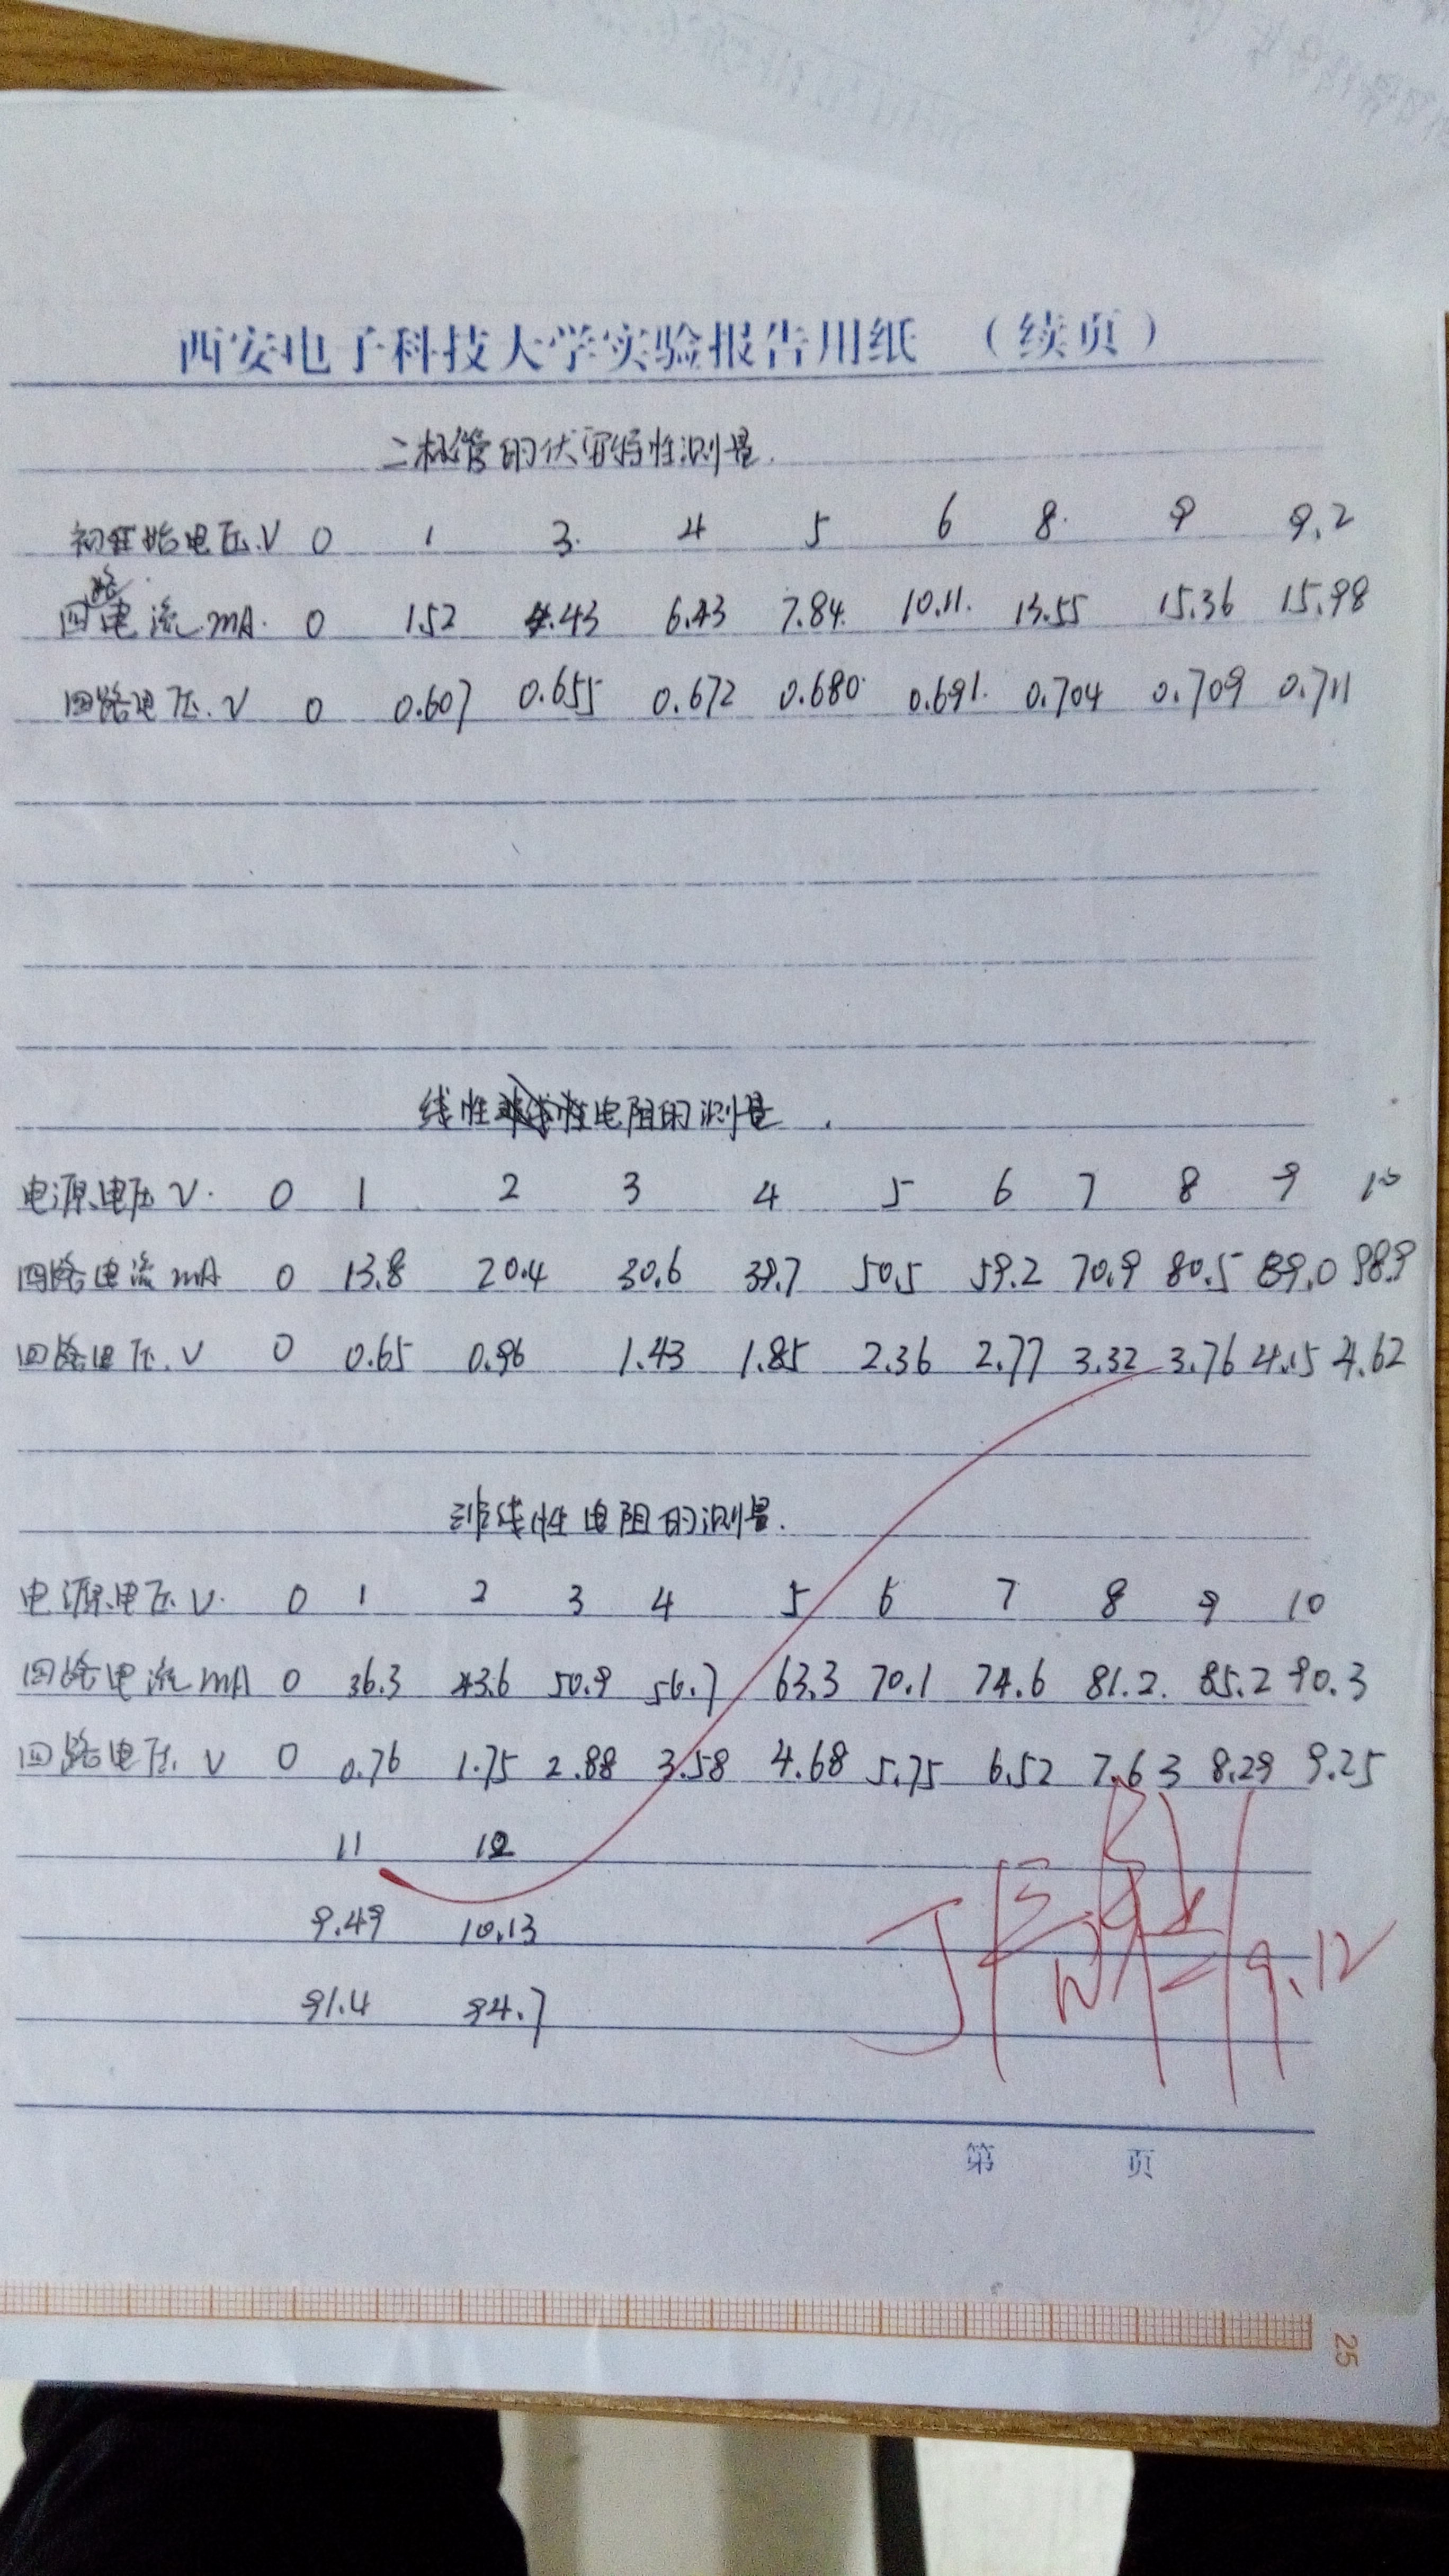 西安电子科技大学实验报告用纸 （续页）
二极管的伏安特性测量.
初始电压.V 0 1 3. 4 5 6 8. 9 9.2
回路电流.mA. 0 1.52 4.43 6.43 7.84. 10.11. 13.55 15.36 15.98
回路电压.V 0 0.607 0.655 0.672 0.680 0.691. 0.704 0.709 0.711
线性电阻的测量.
电源电压V. 0 1 2 3 4 5 6 7 8 9 10
回路电流mA 0 13.8 20.4 30.6 39.7 50.5 59.2 70.9 80.5 89.0 98.9
回路电压.V 0 0.65 0.96 1.43 1.85 2.36 2.77 3.32 3.76 4.15 4.62
非线性电阻的测量.
电源电压V. 0 1 2 3 4 5 6 7 8 9 10
回路电流mA 0 36.3 43.6 50.9 56.7 63.3 70.1 74.6 81.2. 85.2 90.3
回路电压.V 0 0.76 1.75 2.88 3.58 4.68 5.75 6.52 7.63 8.29 9.25
11 12
9.49 10.13
91.4 94.7
9.12
第 页
25